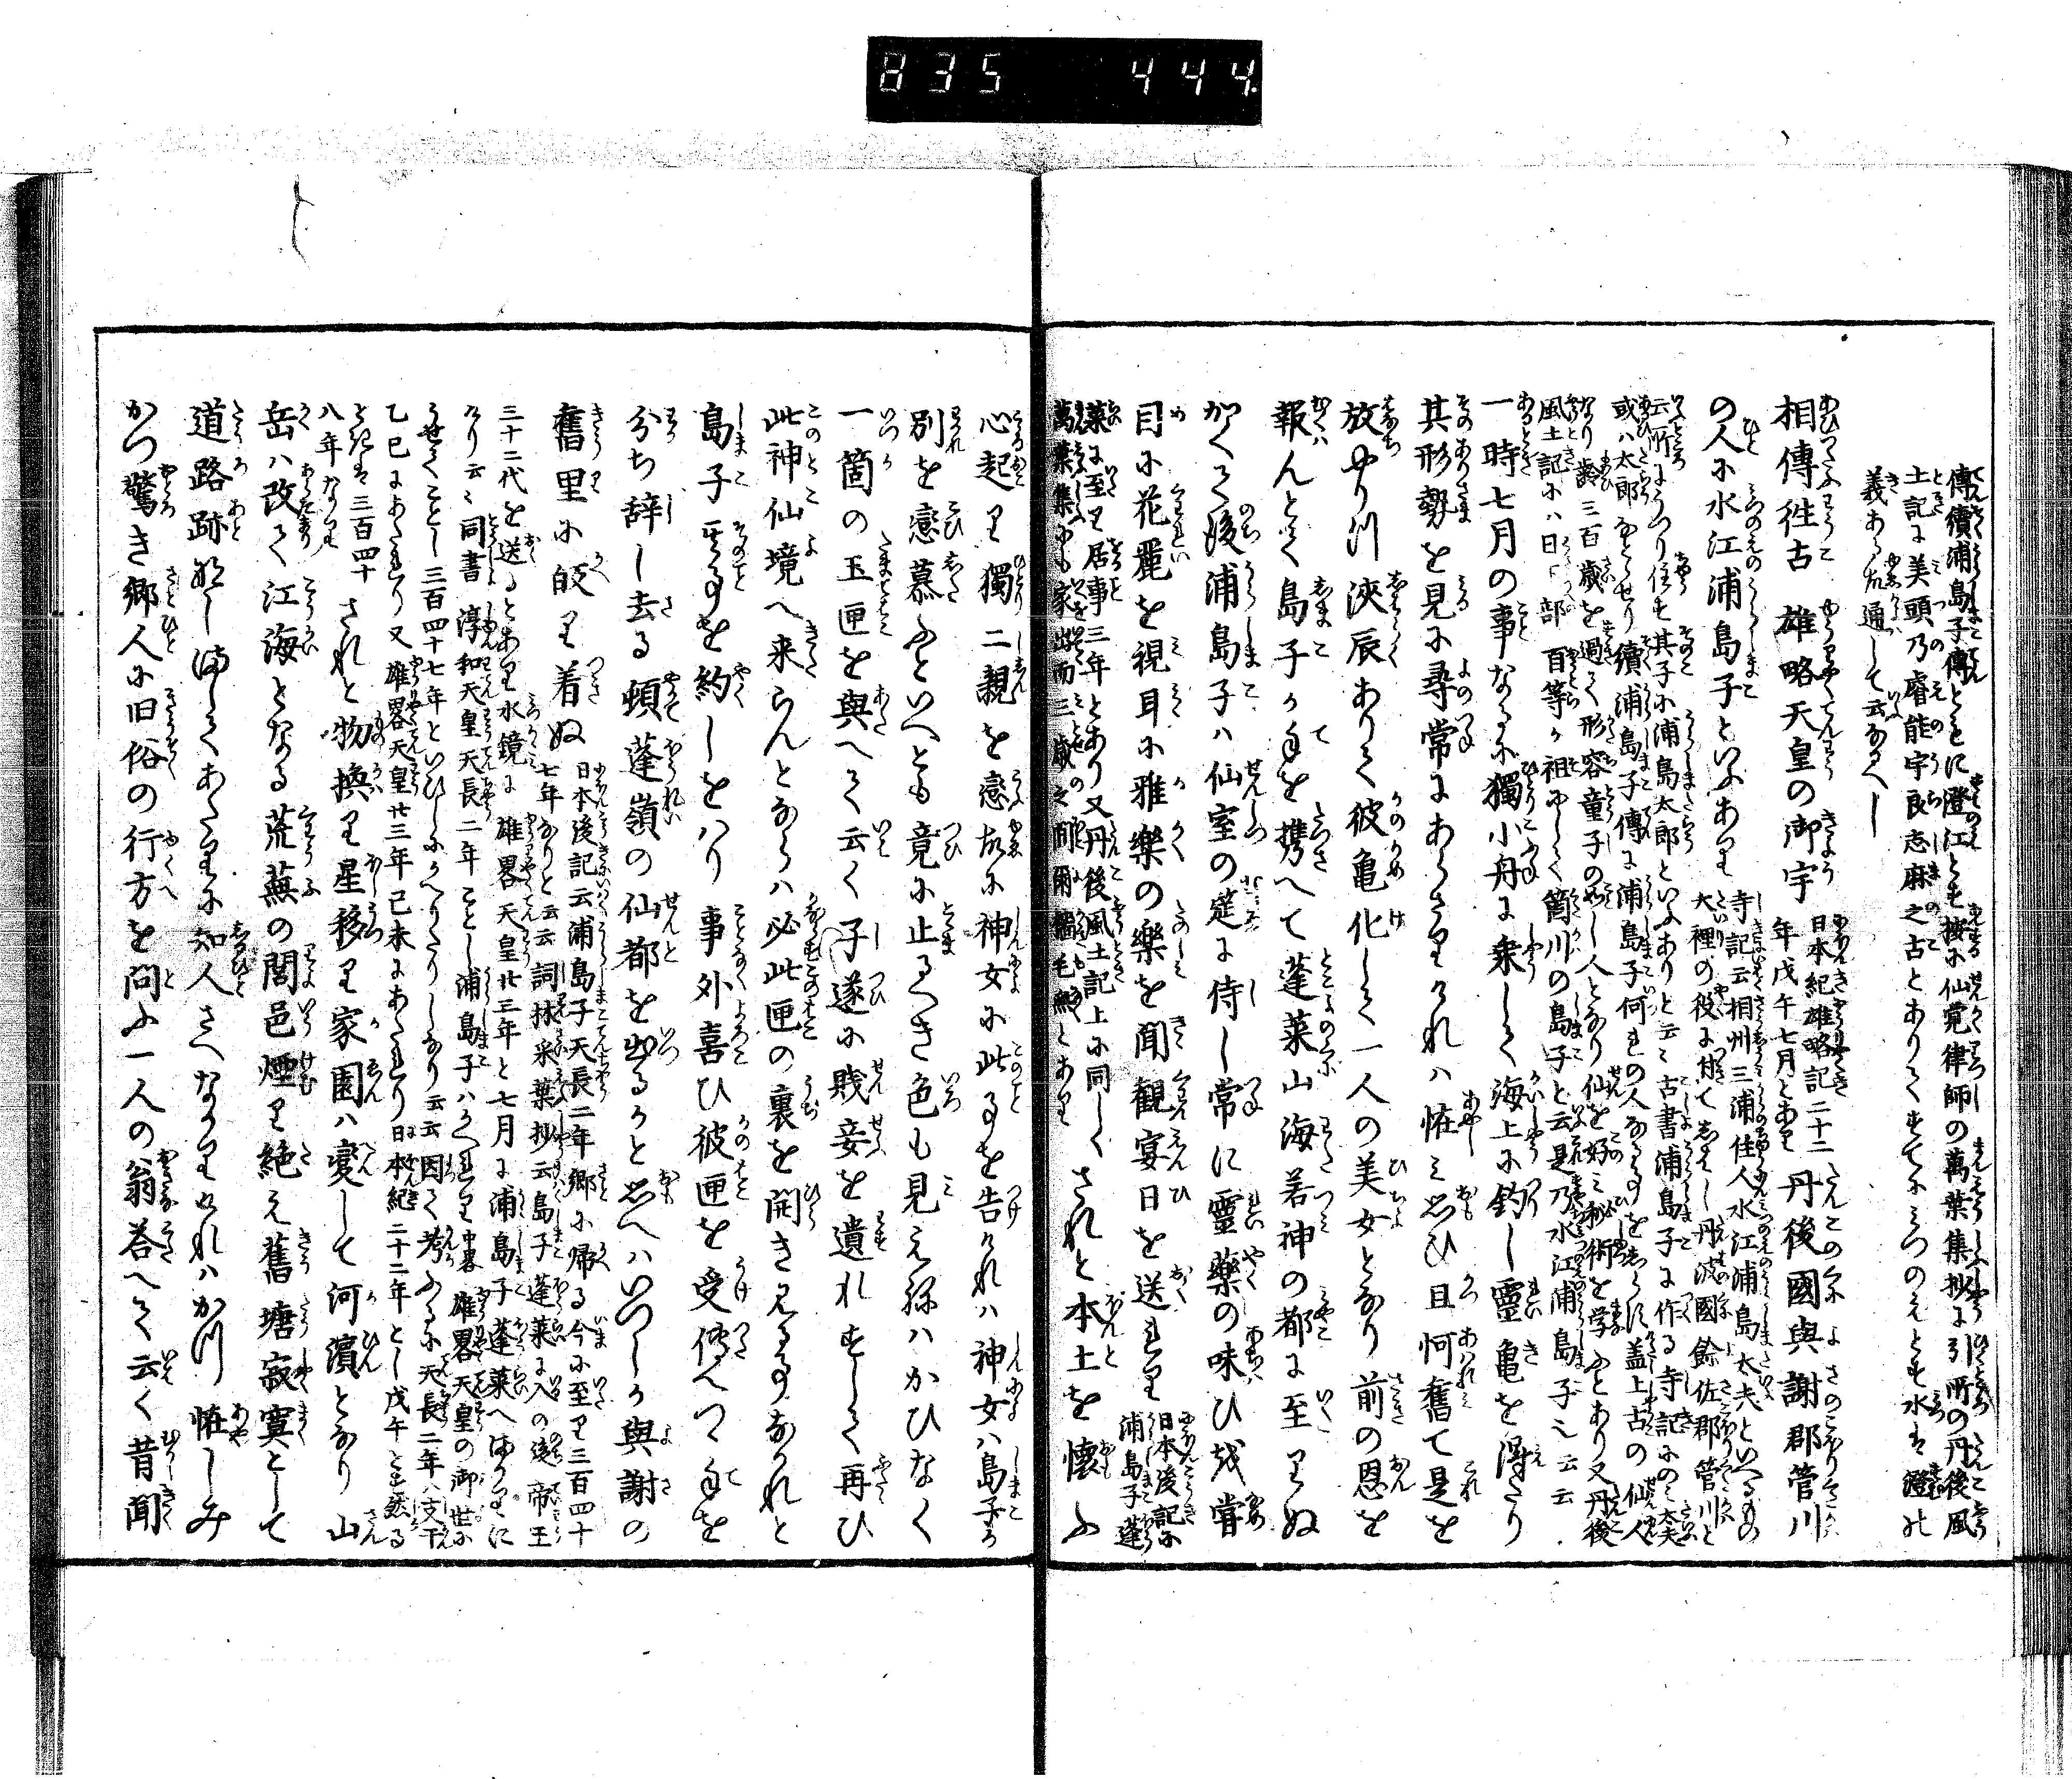 835 444.
傳續浦島子傳ともに澄江とす按に仙覚律師の萬葉集抄に引所の丹後風
土記に美頭乃睿能宇良志麻之古とありてすてにみつのえとも水は澄の
義ある故通して云なるへし
相傳往古 雄略天皇の御宇 日本紀雄略記二十二
年戊午七月とあり 丹後國與謝郡管川
の人に水江浦島子といふあり 寺記云相州三浦住人水江浦島太夫といへるもの
大裡の役に付て
丹波國餘佐郡管川と
云所にうつり住す其子に浦島太郎といふありと云々古書浦島子に作る寺記にのミ太夫
或ハ太郎
續浦島子傳に浦島子何れの人なる事をしらす盖上古の仙人
なり齢三百歳を過て形容童子の如し人となり仙を好ミ秘術を学ふとあり又丹後
風土記にハ日下部首等か祖にして筒川の島子と云是乃水江浦島子也云云
一時七月の事なるに獨小舟に乗して海上に釣し靈亀を得たり
其形勢を見に尋常にあらさりけれハ恠ミ思ひ且怜舊て是を
放やりつ浹辰ありて彼亀化して一人の美女となり前の恩を
報んとて島子か手を携へて蓬莱山海若神の都に至りぬ
かくて後浦島子ハ仙室の筵に侍し常に靈藥の味ひを嘗
目に花麗を視耳に雅樂の樂を聞観宴日を送れり 日本後記に
浦島子蓬
莱に至り居事三年とあり又丹後風土記上に同しく
萬葉集にも家出而三歳之間爾墻毛無とあり されと本土を懐ふ
心起り獨二親を戀故に神女に此事を告けれハ神女ハ島子か
別を戀慕ふといへとも竟に止るへき色も見えねハかひなく
一箇の玉匣を與へて云く子遂に賎妾を遺れすして再ひ
此神仙境へ来らんとならハ必此匣の裏を開き見る事なかれと
島子其事を約しをハり事外喜ひ彼匣を受傳へつゝ手を
分ち辞し去る頓蓬嶺の仙都を出るかと思へハいつしか與謝の
舊里に皈り着ぬ 日本後記云浦島子天長二年郷に帰る今に至り三百四十
七年なりと云云詞林采葉抄云島子蓬莱に入の後帝王
三十二代を送るとあり水鏡に 雄畧天皇廿三年と七月に浦島子蓬莱へまかりに
けり云々同書 淳和天皇天長二年ことし浦島子ハかへれり中畧 雄畧天皇の御世に
うせてことし三百四十七年といひしにかへりたりしなり云云因て考ふるに天長二年ハ支干
乙巳にあたれり又 雄畧天皇廿三年己未にあたれり日本紀二十二年とし戊午とす然る
ときは三百四十
八年なり されと物換り星移り家園ハ變して河濱となり山
岳ハ改て江海となる荒蕪の閭邑煙り絶え舊塘寂寞として
道路跡なしまして あたりに知人さへなかりけれハかつ恠しみ
かつ驚き郷人に旧俗の行方を問ふ一人の翁答へて云く昔聞